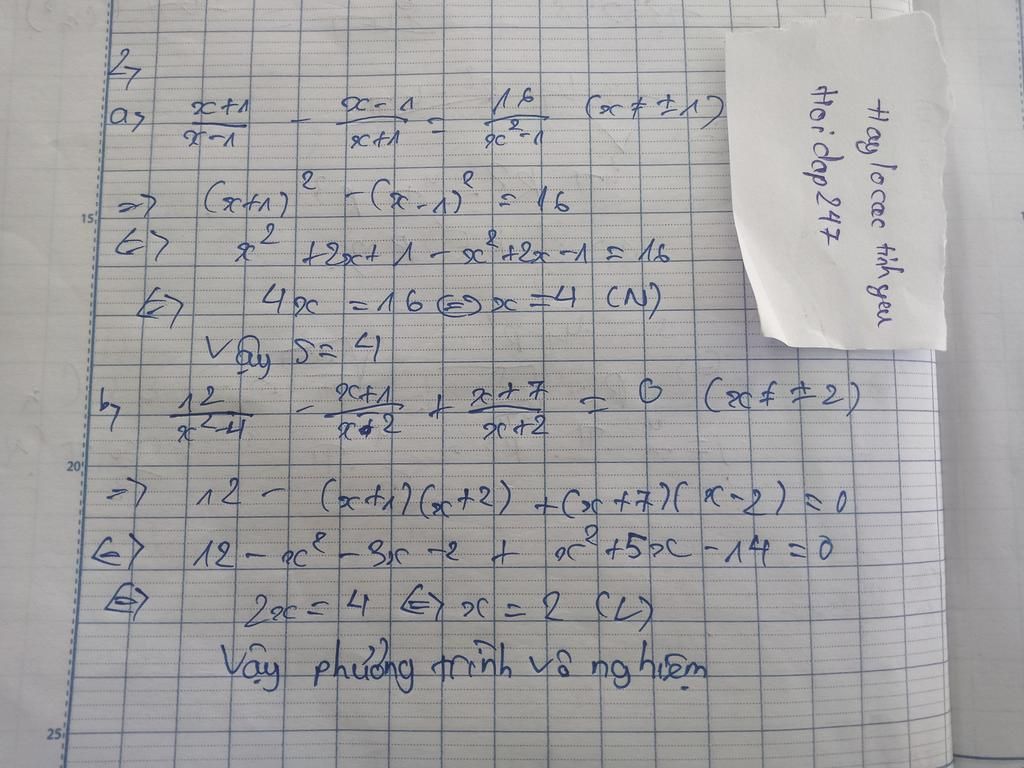 2,
a, x+1/x-1 - x-1/x+1 = 16/x²-1 (x ≠ ±1)
=> (x+1)² - (x-1)² = 16
<=> x² + 2x + 1 - x² + 2x - 1 = 16
<=> 4x = 16 <=> x = 4 (N)
Vậy S = 4
b, 12/x²-4 - x+1/x-2 + x+7/x+2 = 0 (x ≠ ±2)
=> 12 - (x+1)(x+2) + (x+7)(x-2) = 0
<=> 12 - x² - 3x - 2 + x² + 5x - 14 = 0
<=> 2x = 4 <=> x = 2 (L)
Vậy phưởng trình vô nghiệm
Haylocac tinhyeu
Hoidap247
15
20
25